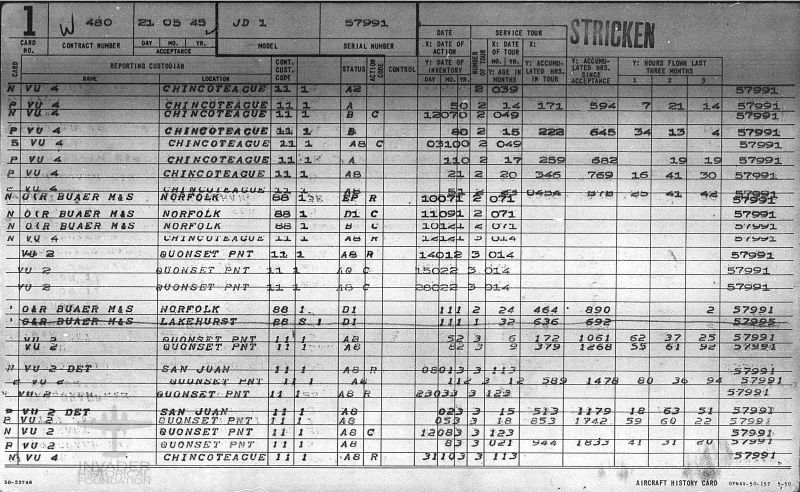 1 W 480 21 05 45 JD 1 57991 STRICKEN
CARD NO. CONTRACT NUMBER DAY MO. YR. ACCEPTANCE MODEL SERIAL NUMBER
DATE SERVICE TOUR
X: DATE OF ACTION NUMBER OF TOUR X: DATE OF TOUR Y: ACCUMULATED HRS. IN TOUR Y: ACCUMULATED HRS. SINCE ACCEPTANCE Y: HOURS FLOWN LAST THREE MONTHS
CARD REPORTING CUSTODIAN CONT. CUST. CODE STATUS ACTION CODE CONTROL Y: DATE OF INVENTORY Y: AGE IN MONTHS
NAME LOCATION DAY MO. YR. MO. YR. 1 2 3
N VU 4 CHINCOTEAGUE 11 1 A2 2 039 57991
P VU 4 CHINCOTEAGUE 11 1 A 50 2 14 171 594 7 21 14 57991
N VU 4 CHINCOTEAGUE 11 1 B C 12070 2 049 57991
P VU 4 CHINCOTEAGUE 11 1 B 80 2 15 222 645 34 13 4 57991
S VU 4 CHINCOTEAGUE 11 1 A8 C 03100 2 049 57991
P VU 4 CHINCOTEAGUE 11 1 A 110 2 17 259 682 19 19 57991
P VU 4 CHINCOTEAGUE 11 1 A8 21 2 20 346 769 16 41 30 57991
P VU 4 CHINCOTEAGUE 11 1 A8 2 25 41 42 57991
N O&R BUAER M&S NORFOLK 88 1 EP R 10071 2 071 57991
N O&R BUAER M&S NORFOLK 88 1 D1 C 11091 2 071 57991
N O&R BUAER M&S NORFOLK 88 1 B C 10121 2 071 57991
N VU 4 CHINCOTEAGUE 11 1 A8 R 12121 3 014 57991
VU 2 QUONSET PNT 11 1 A8 R 14012 3 014 57991
VU 2 QUONSET PNT 11 1 A8 C 15022 3 014 57991
VU 2 QUONSET PNT 11 1 A8 C 28022 3 014 57991
O&R BUAER M&S NORFOLK 88 1 D1 111 2 24 464 890 2 57991
O&R BUAER M&S LAKEHURST 88 S 1 D1 111 1 32 636 692 57995
VU 2 QUONSET PNT 11 1 A8 52 3 6 172 1061 62 37 25 57991
VU 2 QUONSET PNT 11 1 A8 82 3 9 379 1268 55 61 92 57991
N VU 2 DET SAN JUAN 11 1 A8 R 08013 3 113 57991
VU 2 QUONSET PNT 11 1 A8 112 3 12 589 1478 80 36 94 57991
VU 2 QUONSET PNT 11 1 A8 R 23033 3 123 57991
P VU 2 DET SAN JUAN 11 1 A8 023 3 15 513 1179 18 63 51 57991
P VU 2 QUONSET PNT 11 1 A8 053 3 18 853 1742 59 60 22 57991
N VU 2 QUONSET PNT 11 1 A8 C 12083 3 123 57991
P VU 2 QUONSET PNT 11 1 A8 83 3 021 944 1833 41 31 20 57991
N VU 4 CHINCOTEAGUE 11 1 A8 R 31103 3 113 57991
INVADER
FOUNDATION
AIRCRAFT HISTORY CARD OPNAV-50-157 5-50